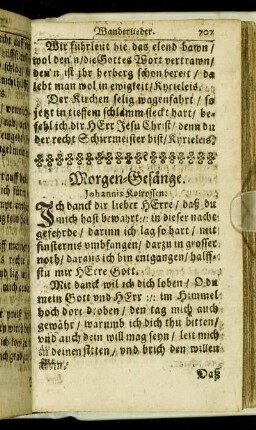 Wanderlieder. 701
Wir fuhrleut hie das elend bawn /
wol den'n / die Gottes Wort vertrawn /
den'n ist jhr herberg schon bereit / da
lebt man wol in ewigkeit / Kyrieleis.
Der Kirchen selig wagenfahrt / so
jetzt in tieffem schlam̃ steckt hart / be-
fehl ich dir HErr Jesu Christ / denn du
der recht Schirrmeister bist / Kyrieleis.
Morgen-Gesänge.
Johannis Kolrossen.
Ich danck dir lieber HErre / daß du
mich hast bewahrt :/: in dieser nacht
gefehrde / darinn ich lag so hart / mit
finsternis umbfangen / darzu in grosser
noth / daraus ich bin entgangen / halff-
stu mir HErre Gott.
Mit danck wil ich dich loben / O du
mein Gott und HErr :/: im Himmel
hoch dort droben / den tag mich auch
gewähr / warumb ich dich thu bitten /
und auch dein will mag seyn / leit mich
in deinen sitten / und brich den willen
Daß